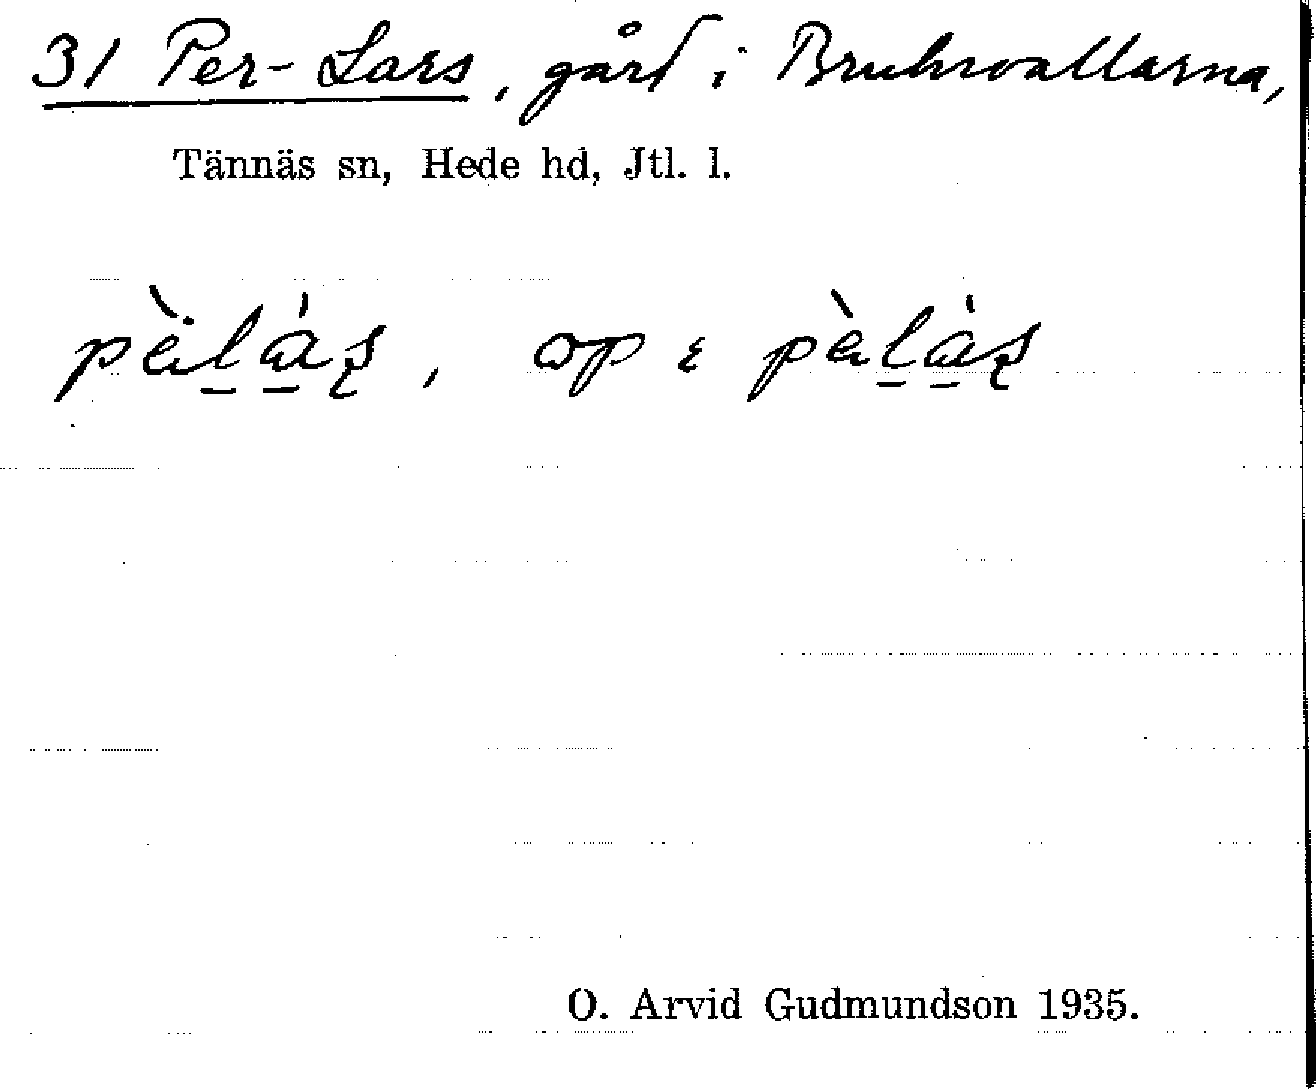 31 Per-Lars, gård i Bruksvallarna,
Tännäs sn, Hede hd, Jtl. l.
pὲ̈l̠a̠̍ʂ, op ε pὲl̠a̠̍ʂ
O. Arvid Gudmundson 1935.